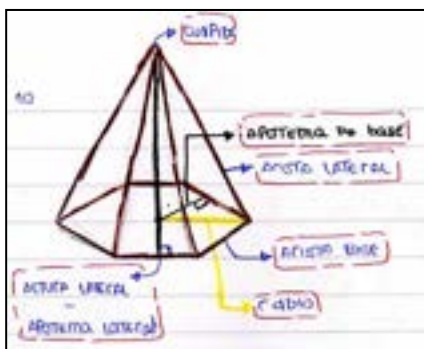 CUSPIDE
10
APOTEMA DE base
ARISTA LATERAL
ARISTA BASE
RADIO
ALTURA LATERAL
=
APOTEMA LATERAL